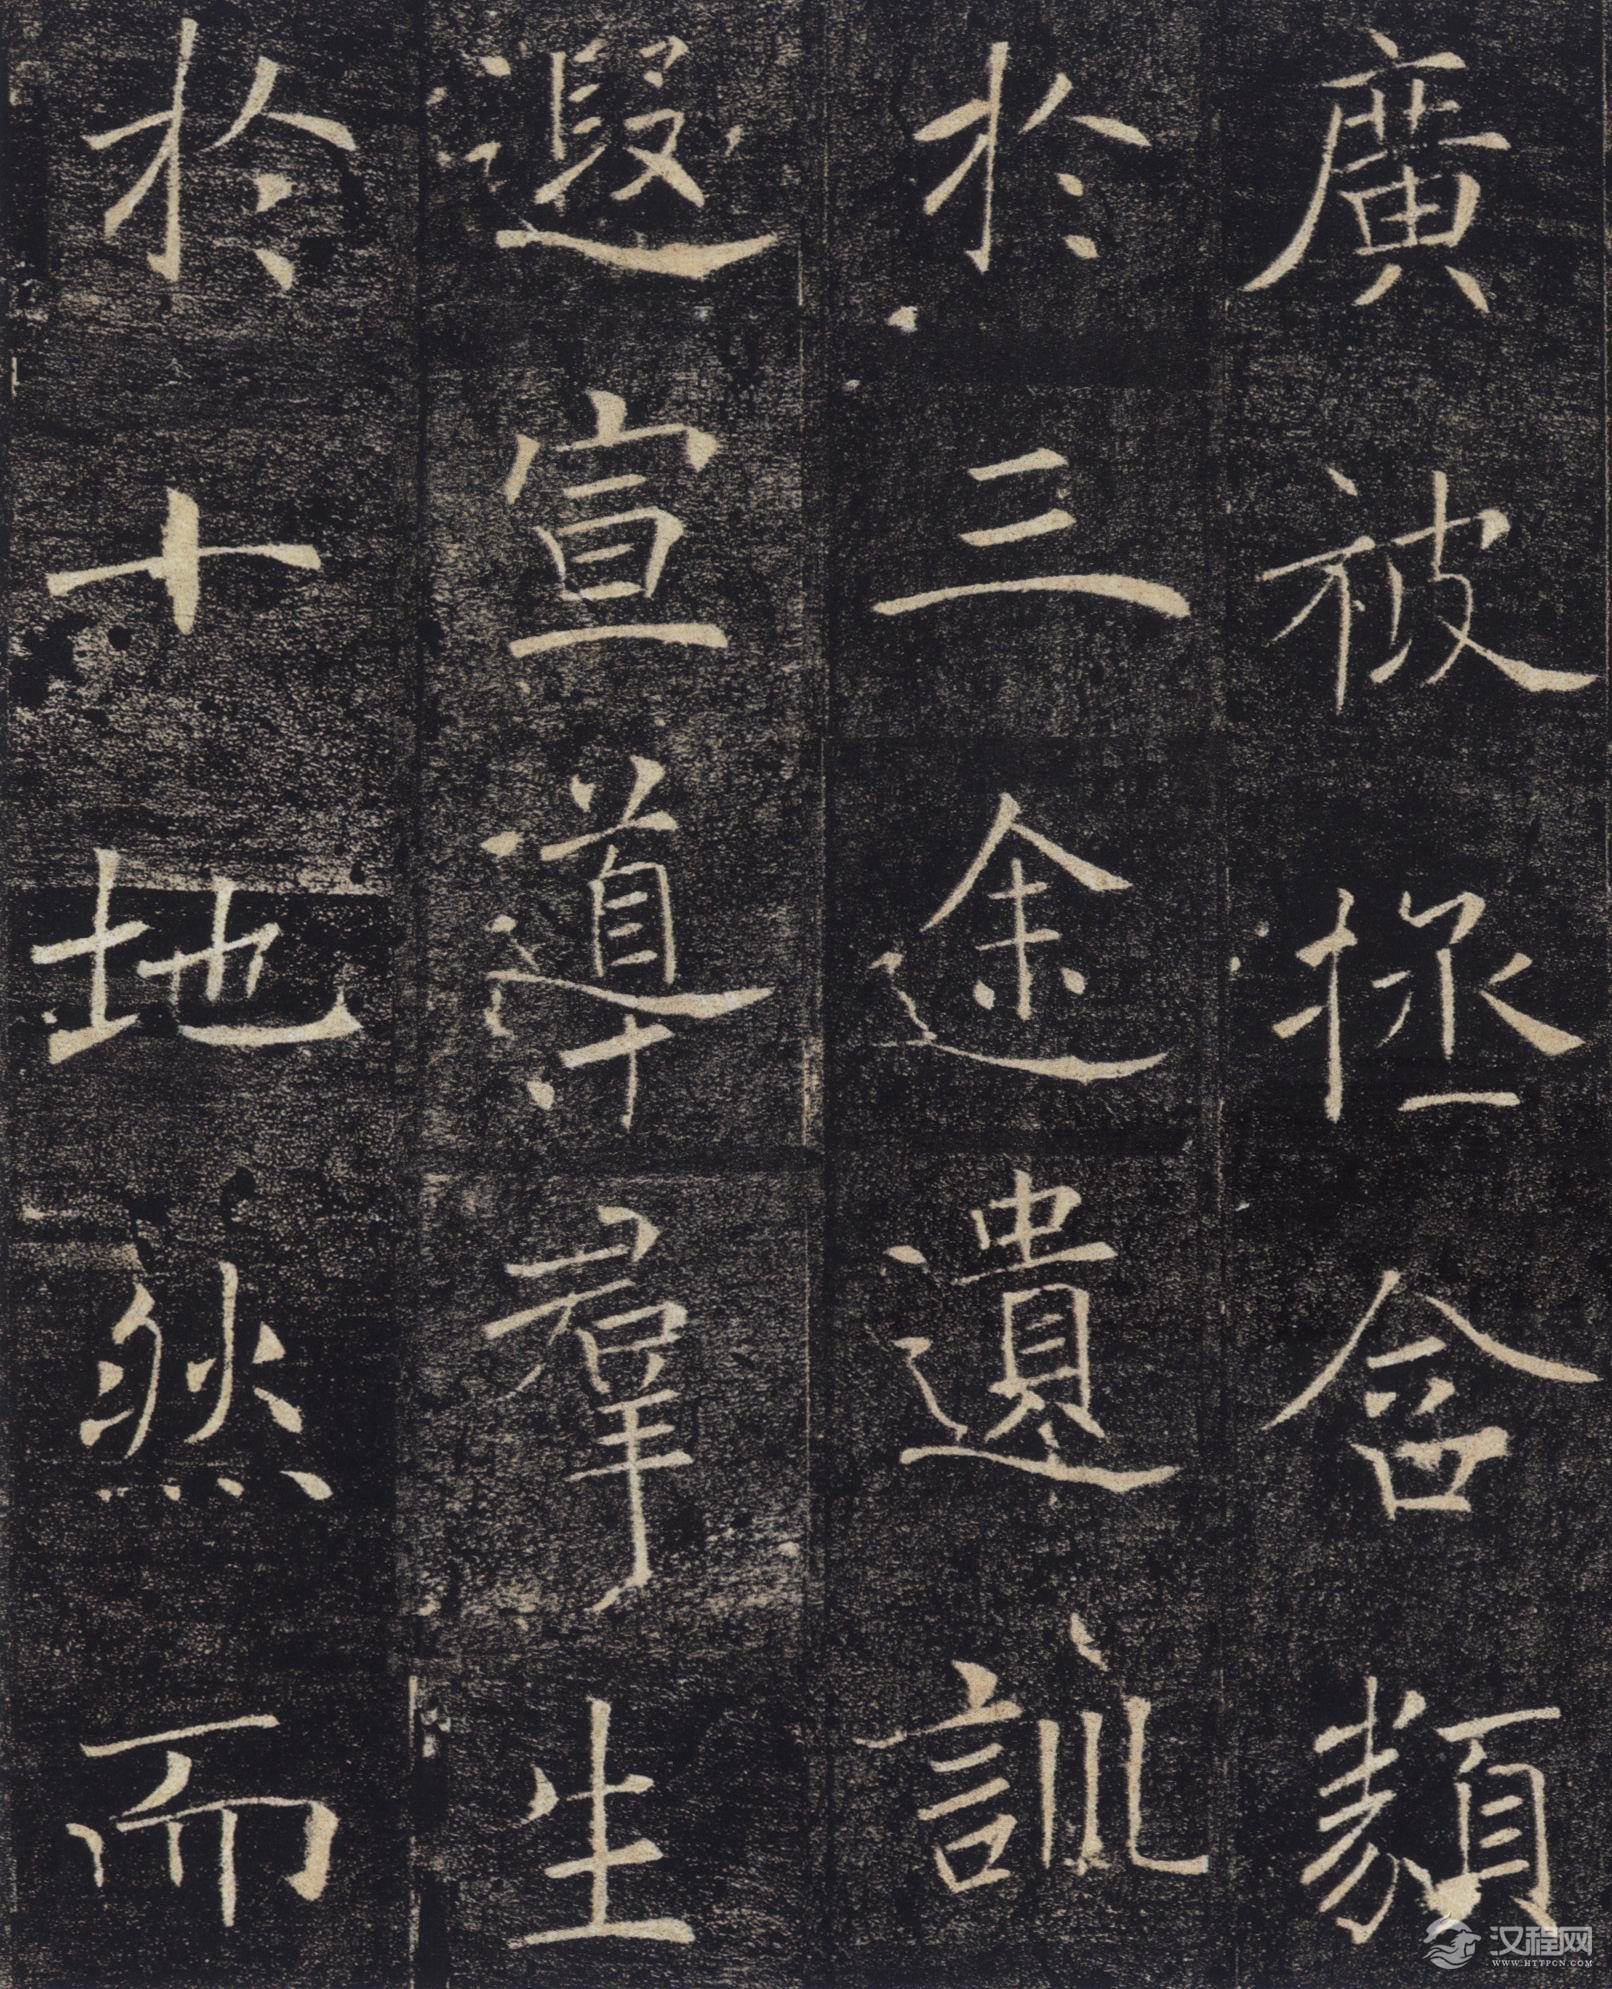 廣被拯含類
於三途遺訓
遐宣導羣生
於十地然而
汉程网
WWW.HTTPCN.COM